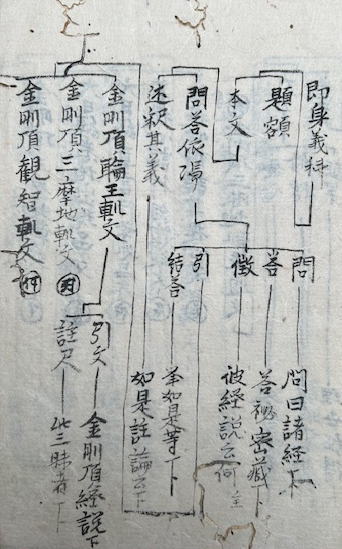 即身義科
題額
本文
問答依憑
述釈其義
問
答
徴
引
結答
問曰諸経下
答秘密蔵下
彼経説云何
挙如是等下
如是註論云下
金剛頂輪王軌文
金剛頂三摩地軌文
金剛頂観智軌文
引文
註尺
金剛頂経説下
此三昧者下